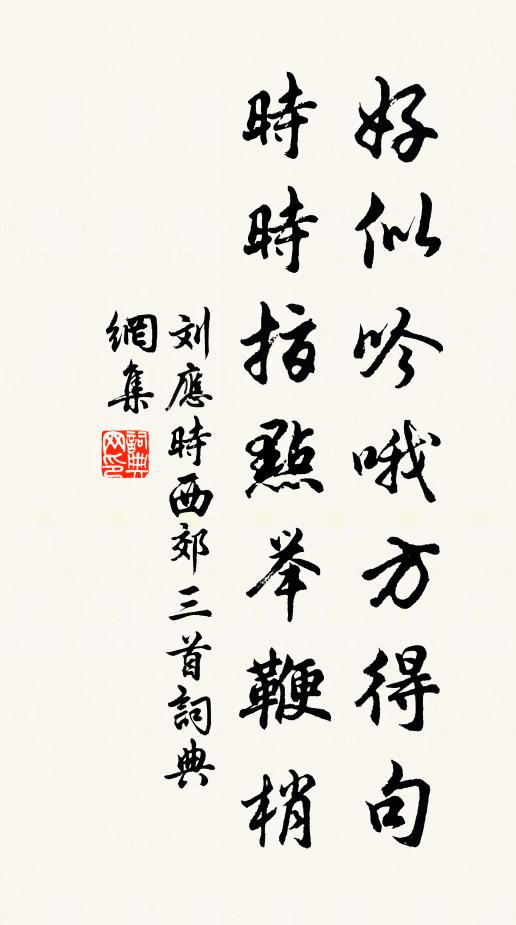 好似吟哦方得句
時時指點举鞭梢
刘應時西郊三首詞典
網集
詞典
网印